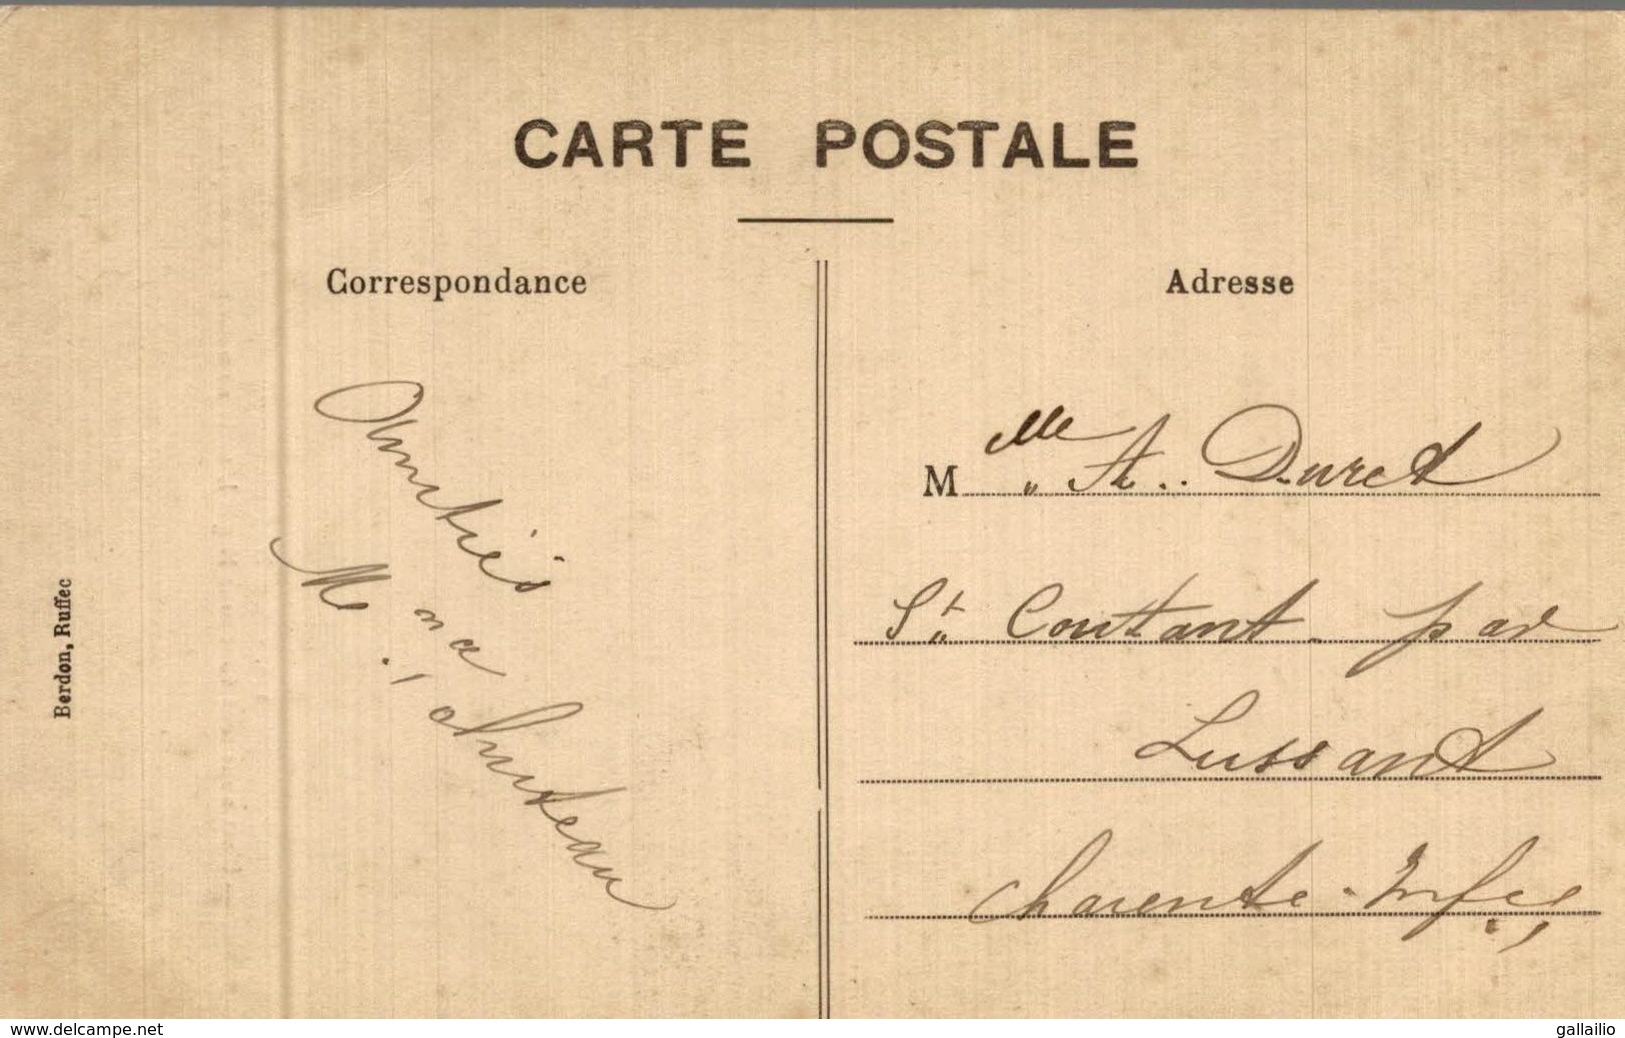 CARTE POSTALE
Correspondance
Amitiés
Adresse
Mlle A. Duret
St Coutant par
Lussant
Charente-Infre
Berdon, Ruffec
www.delcampe.net
gallailio